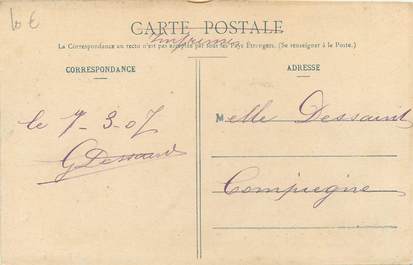 10 €
CARTE POSTALE
Imprimé
La Correspondance au recto n'est pas acceptée par tous les Pays Étrangers. (Se renseigner à la Poste.)
CORRESPONDANCE
ADRESSE
le 7-3-07
Melle Dessaint
Compiegne